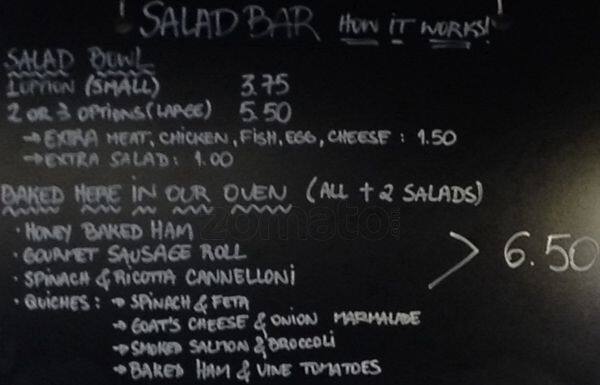 SALAD BAR HOW IT WORKS!
SALAD BOWL
1 OPTION (SMALL) 3.75
2 OR 3 OPTIONS (LARGE) 5.50
→ EXTRA MEAT, CHICKEN, FISH, EGG, CHEESE : 1.50
→ EXTRA SALAD : 1.00
BAKED HERE IN OUR OVEN (ALL + 2 SALADS)
zomato
· HONEY BAKED HAM
· GOURMET SAUSAGE ROLL > 6.50
· SPINACH & RICOTTA CANNELLONI
· QUICHES : → SPINACH & FETA
→ GOAT'S CHEESE & ONION MARMALADE
→ SMOKED SALMON & BROCCOLI
→ BAKED HAM & VINE TOMATOES